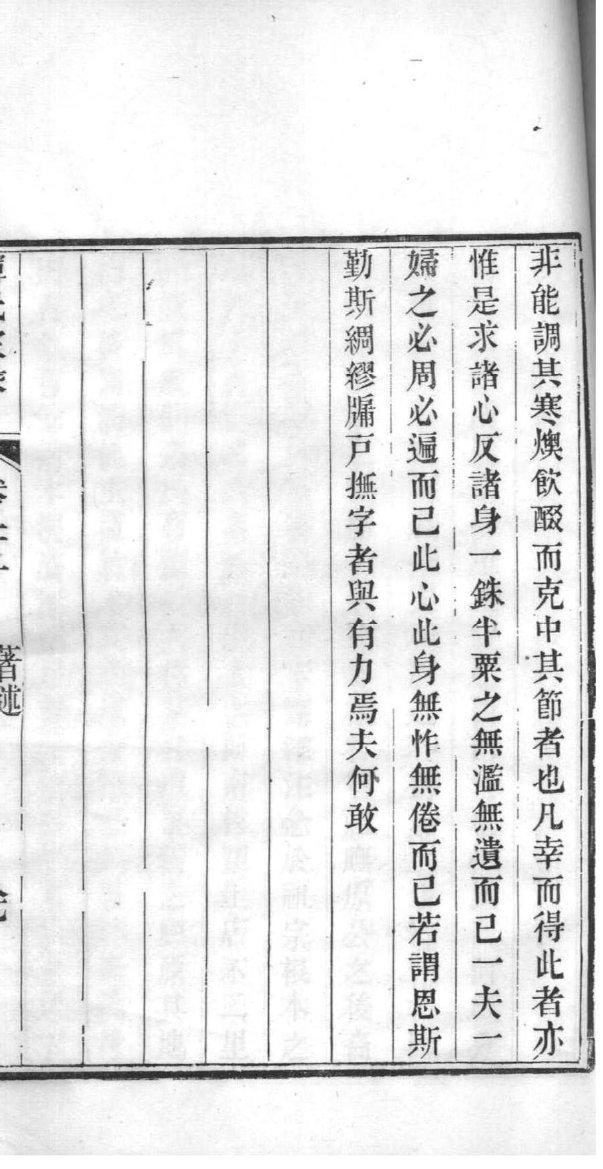 非能調其寒燠飲酘而克中其節者也凡幸而得此者亦
惟是求諸心反諸身一銖半粟之無濫無遺而已一夫一
婦之必周必遍而已此心此身無怍無倦而已若謂恩斯
勤斯綢繆牖戸撫字者與有力焉夫何敢
著述